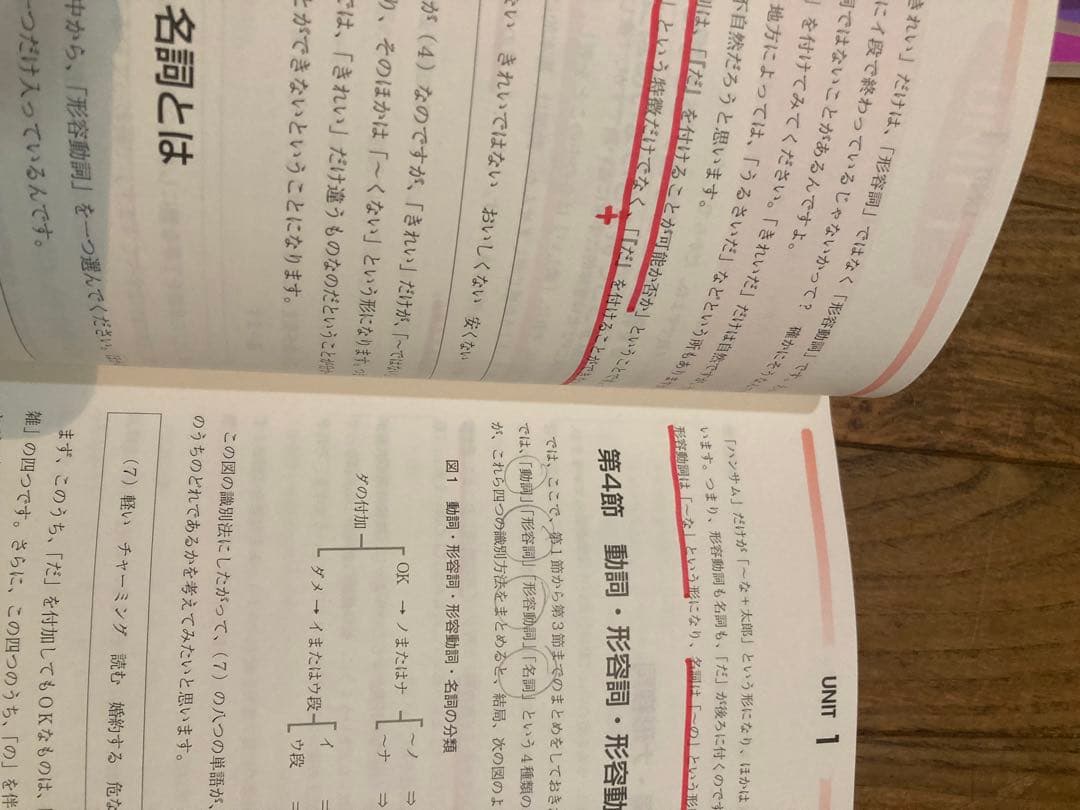 きれい」だけは、「形容詞」ではなく「形容動詞」です。
にイ段で終わっているじゃないかって? 確かにそう
詞ではないことがあるんですよ。
」を付けてみてください。「きれいだ」だけは自然で
地方によっては、「うるさいだ」などという所もあります
不自然だろうと思います。
別は、「「だ」を付けることが可能か否か」ということ
」という特徴だけでなく、「「だ」を付けることができ
+
ない きれいではない おいしくない 安くない
が(4)なのですが、「きれい」だけが、「〜ではな
り、そのほかは「〜くない」という形になります。
では、「きれい」だけ違うものなのだということが
とができないということになります。
名詞とは
中から、「形容動詞」を一つ選んでください。
一つだけ入っているんです。
UNIT 1
「ハンサム」だけが「〜な+太郎」という形になり、ほかは
います。つまり、形容動詞も名詞も、「だ」が後ろに付くのです
形容動詞は「〜な」という形になり、名詞は「〜の」という形
第4節 動詞・形容詞・形容動
では、ここで、第1節から第3節までのまとめをしておき
では、「動詞」「形容詞」「形容動詞」「名詞」という4種類の
が、これら四つの識別方法をまとめると、結局、次の図のよ
図1 動詞・形容詞・形容動詞・名詞の分類
ダの付加
OK → ノまたはナ
〜ノ ⇒
〜ナ ⇒
ダメ → イまたはウ段
イ =
ウ段 =
この図の識別法にしたがって、(7)の八つの単語が、
のうちのどれであるかを考えてみたいと思います。
(7)軽い チャーミング 読む 婚約する 危な
まず、このうち、「だ」を付加してもOKなものは、「
雑」の四つです。さらに、この四つのうち、「の」を伴